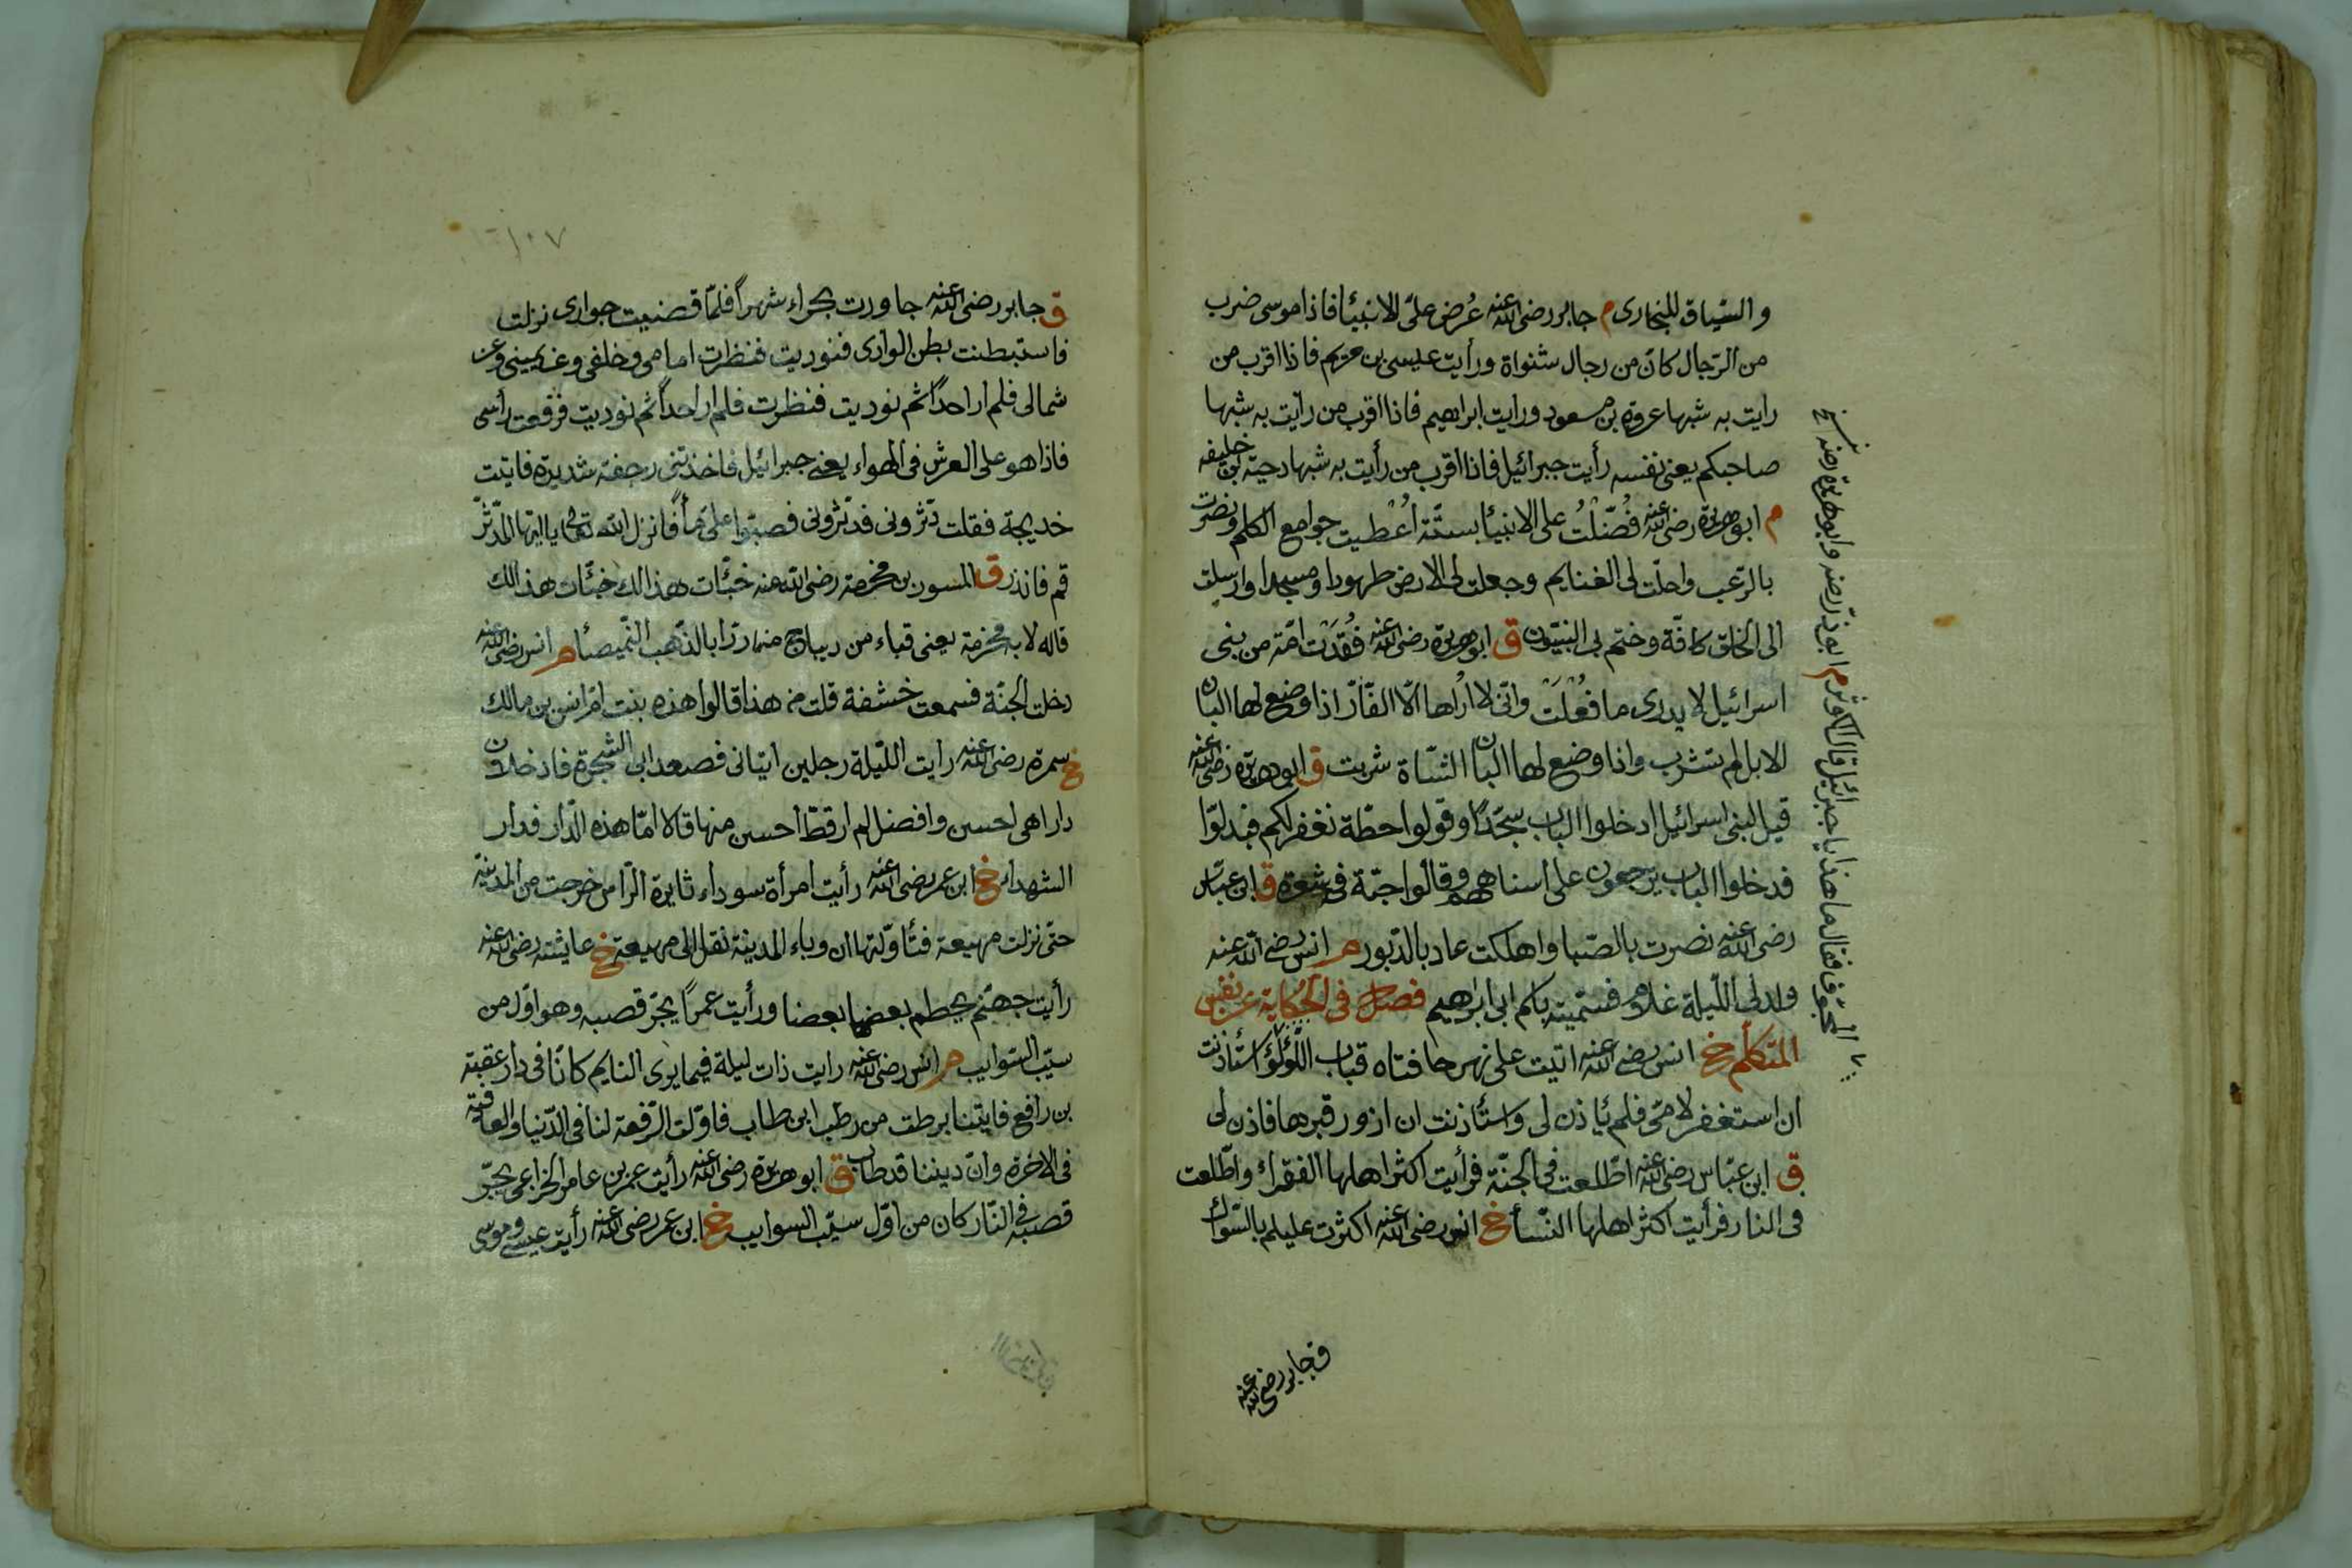 والسّياق للبخارى م جابر رضى الله عنه عُرض علىّ الانبئا فاذا موسى ضرب
من الرّجال كانّ من رجال شنواة ورأيت عيسى بن مريم فاذا اقرب من
رايت به شبها عروة بن مسعود ورايت ابراهيم فاذا اقرب من رأيت به شبها
صاحبكم يعنى نفسه رأيت جبرائيل فاذا اقرب من رأيت به شبها دحية بن خليفه
م ابو هريرة رضى الله عنه فُضّلْتُ على الانبئا بستّة اُعْطيت جوامع الكلم ونصرت
بالرّعب واحلّت لى الغنايم وجعلت لى الارض طهورا ومسجدا وارسلت
الى الخلق كافّة وختم بى النبيّون ق ابو هريرة رضى الله عنه فُقِدَتْ امّة من بنى
اسرائيل لا يدرى ما فَعَلَتْ وانّى لا اُراها الّا الفٔار اذا وضع لها البان
الابل لم تشرب واذا وضع لها البان الشّاة شربت ق ابو هريرة رضى الله عنه
قيل لبنى اسرائيل ادخلوا الباب سجّدًا وقولوا حطّة نغفر لكم فبدلّوا
فدخلوا الباب يزحفون على استاههم وقالوا حبّة فى شعرة ق ابن عبّاس
رضى الله عنه نصرت بالصّبا واهلكت عاد بالدّبور م انس رضى الله عنه
ولد لى اللّيلة غلام فسمّيته باسم ابى ابراهيم فصل فى الحكاية عن نفس
المتكلّم خ انس رضى الله عنه اتيت على نهر حافتاه قباب اللّؤلؤ استأذنت
ان استغفر لامّى فلم ئاذن لى واستأذنت ان ازور قبرها فاذن لى
ق ابن عبّاس رضى الله عنه اطّلعت فى الجنّة فرأيت اكثر اهلها الفقراء واطّلعت
فى النار فرأيت اكثر اهلها النّسأ خ انس رضى الله عنه اكثرت عليكم بالسّواك
ق جابر رضى الله عنه
ق جابر رضى الله عنه جاورت بحراء شهراً فلمّا قضيت جوارى نزلت
فاستبطنت بطن الوادى فنوديت فنظرت امامى وخلفى وعن يمينى وعن
شمالى فلم ار احداً ثم نوديت فنظرت فلم ار احداً ثم نوديت فرفعت رأسى
فاذا هو على العرش فى الهواء يعنى جبرائيل فاخذتنى رجفة شديدة فاتيت
خديجة فقلت دثّرونى فدثّرونى فصبّوا علىّ مأً فانزل الله تعالى يا ايّها المدّثّر
قم فانذر ق المسور بن مخرمة رضى الله عنه خبّأت هذا لك خبّأت هذا لك
قاله لابه مخرمة يعنى قباء من ديباج مزررا بالذّهب م انس رضى الله عنه
دخلت الجنّة فسمعت خشفة قلت من هذا قالوا هذه بنت امّ انس بن مالك
خ سمرة رضى الله عنه رأيت اللّيلة رجلين اتيانى فصعدا بى الشجرة فادخلانى
دارا هى احسن وافضل لم ار قطّ احسن منها قالا امّا هذه الدّار فدار
الشهداء خ ابن عمر رضى الله عنه رأيت امرأة سوداء ثايرة الرّأس خرجت من المدينة
حتى نزلت مهيعة فتٔاوّلتها ان وباء المدينة نقل الى مهيعة خ عايشته رضى الله عنه
رأيت جهنّم يحطم بعضها بعضا ورأيت عمرًا يجرّ قصبه وهو اوّل من
سيّب السّوايب م انس رضى الله عنه رايت ذات ليلة فيما يرى النايم كانّا فى دار عقبة
بن رافع فاتينا برطب من رطب ابن طاب فاوّلت الرّفعة لنا فى الدّنيا والعاقبة
فى الاخرة وانّ ديننا قد طاب ق ابو هريرة رضى الله عنه رأيت عمر بن عامر الخزاعى يجرّ
قصبه فى النّار كان من اوّل سيّب السوايب خ ابن عمر رضى الله عنه رأيت عيسى وموسى